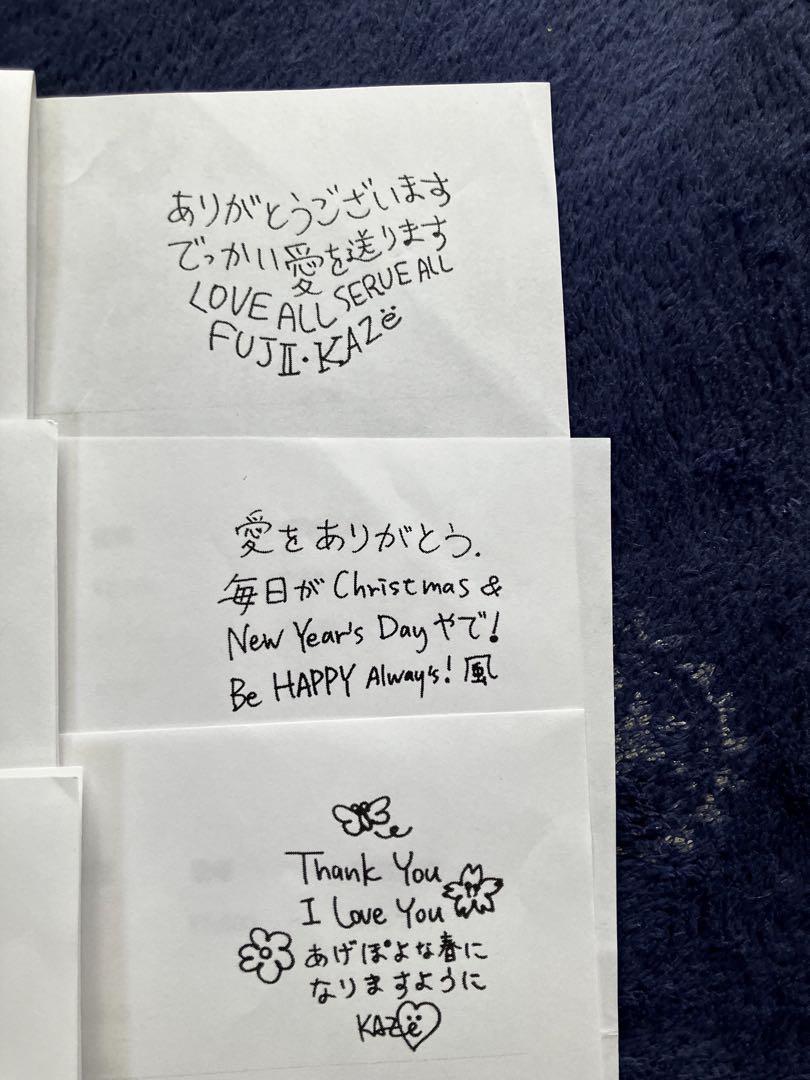 ありがとうございます
でっかい愛を送ります
LOVE ALL SERVE ALL
FUJII・KAZë
愛をありがとう.
毎日が Christmas &
New Year's Day やで!
Be HAPPY Alway's! 風
Thank You
I Love You
あげぽよな春に
なりますように
KAZë